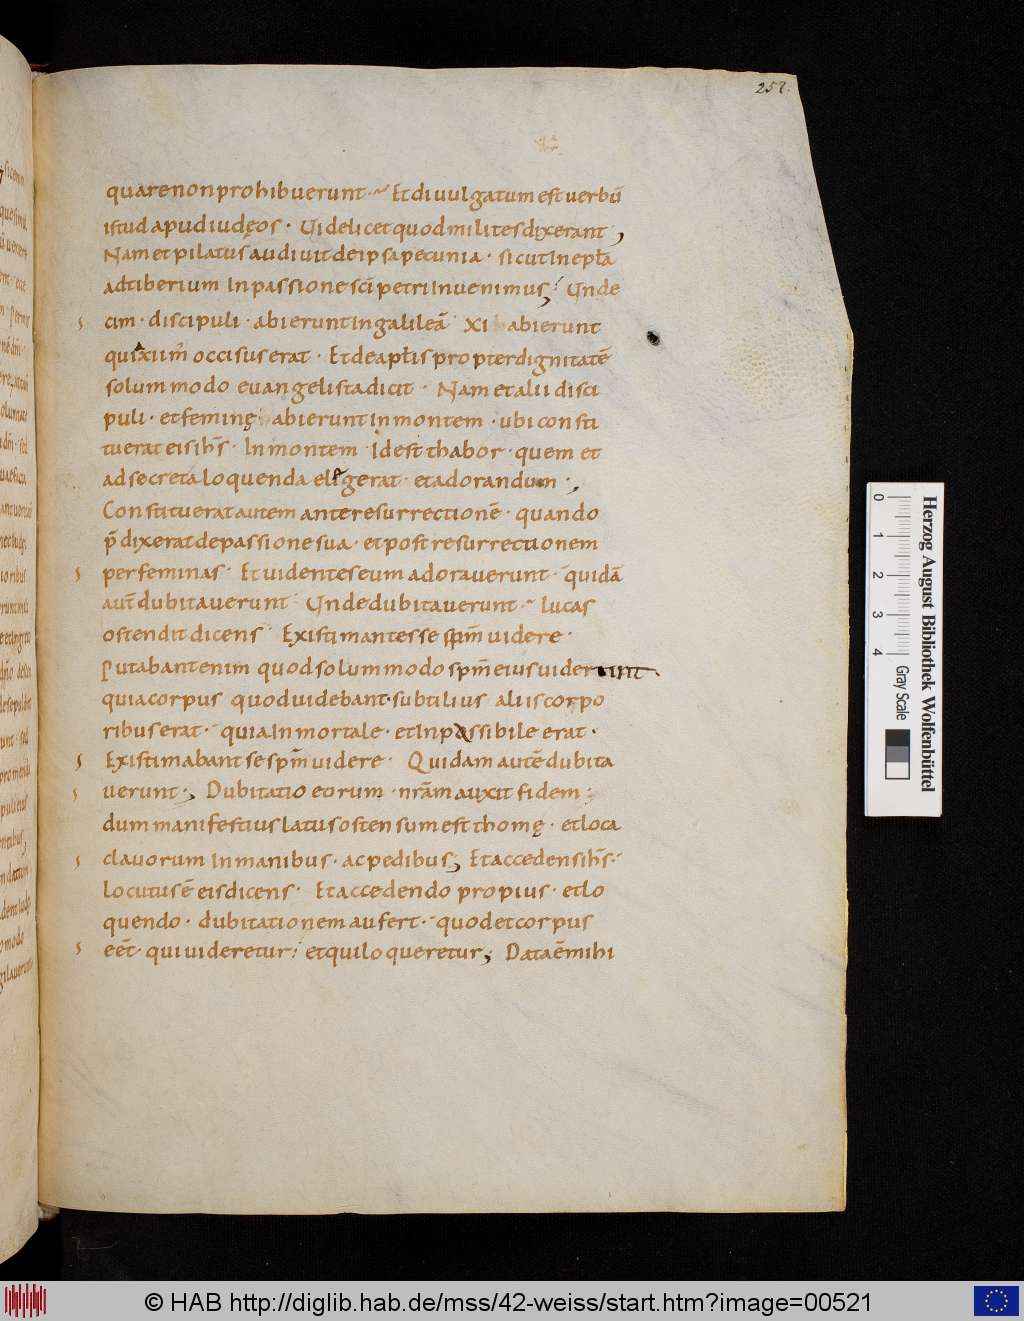 257.
quare non prohibuerunt · Et diuulgatum est uerbū
istud apud iudęos · Uidelicet quod milites dixerant ;
Nam et pilatus audiuit de ipsa pecunia · sicut In epła
ad tiberium In passione sc̄i petri Inuenimus ; Unde
cim · discipuli · abierunt In galileā XI abierunt
quia xiim̄ occisus erat · Et de apłis propter dignitatē
solummodo euangelista dicit · Nam et alii disci
puli · et feminę abierunt In montem · ubi consti
tuerat eis ih̄s · In montem Id est thabor · quem et
ad secreta loquenda elegerat · et adorandum ·,
Constituerat autem ante resurrectionē · quando
p̄dixerat de passione sua · et post resurrectionem
per feminas · Et uidentes eum adorauerunt · quidā
aut̄ dubitauerunt Unde dubitauerunt · lucas
ostendit dicens Existimantes se sp̄m uidere ·
Putabant enim quod solummodo sp̄m eius uiderunt
quia corpus quod uidebant · subtilius aliis corpo
ribus erat · quia Inmortale · et Inpassibile erat ·
Existimabant se sp̄m uidere · Quidam autē dubita
uerunt ; Dubitatio eorum · nr̄am auxit fidem ;
dum manifestius latus ostensum est thomę · et loca
clauorum In manibus · ac pedibus ; Et accedens ih̄s ·
locutus ē eis dicens · Et accedendo propius · et lo
quendo · dubitationem aufert · quod et corpus
eēt · qui uideretur : et qui loqueretur ; Data ē mihi
Herzog August Bibliothek Wolfenbüttel
0 1 2 3 4
Gray Scale
© HAB http://diglib.hab.de/mss/42-weiss/start.htm?image=00521